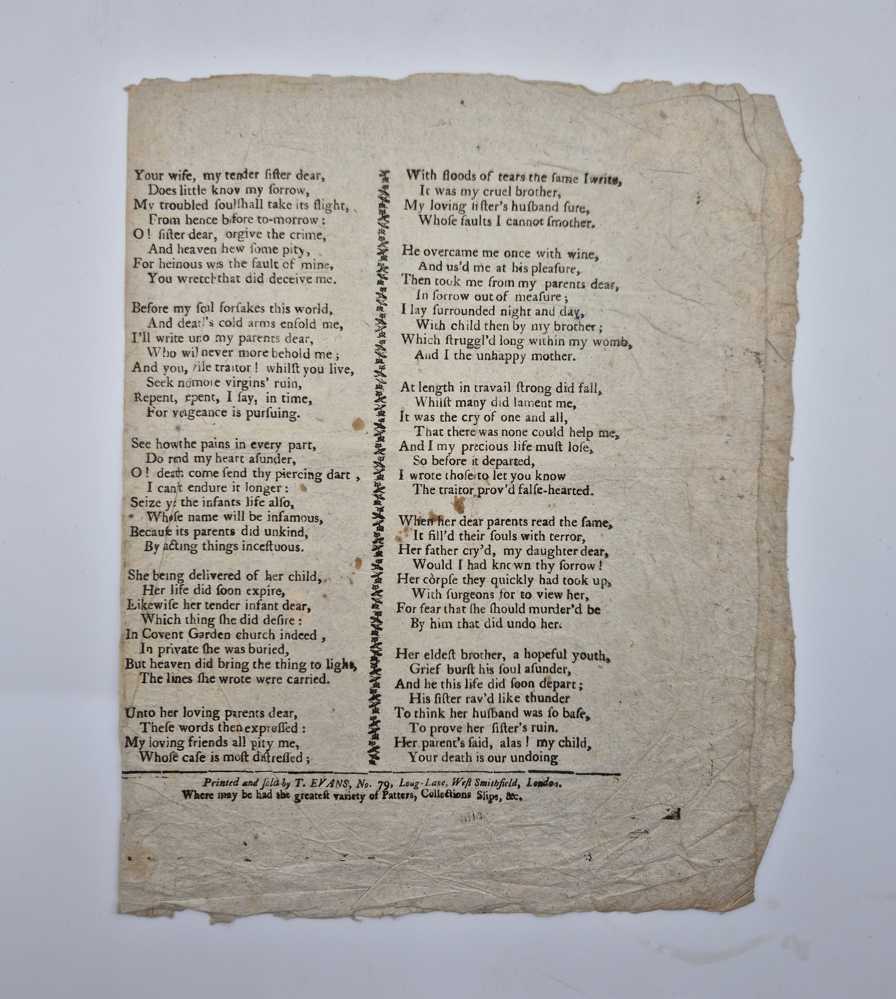 Your wife, my tender ſiſter dear,
Does little knov my ſorrow,
My troubled ſoul ſhall take its flight,
From hence before to-morrow:
O! ſiſter dear, orgive the crime,
And heaven hew ſome pity,
For heinous was the fault of mine,
You wretch that did deceive me.
Before my ſoil forſakes this world,
And deatl's cold arms enfold me,
I'll write uno my parents dear,
Who wil never more behold me;
And you, vile traitor! whilſt you live,
Seek no more virgins' ruin,
Repent, epent, I ſay, in time,
For vengeance is purſuing.
See how the pains in every part,
Do rend my heart aſunder,
O! death come ſend thy piercing dart,
I can't endure it longer:
Seize ye the infants life alſo,
Whoſe name will be infamous,
Becauſe its parents did unkind,
By acting things inceſtuous.
She being delivered of her child,
Her life did ſoon expire,
Likewiſe her tender infant dear,
Which thing ſhe did deſire:
In Covent Garden church indeed,
In private ſhe was buried,
But heaven did bring the thing to light,
The lines ſhe wrote were carried.
Unto her loving parents dear,
Theſe words then expreſſed:
My loving friends all pity me,
Whoſe caſe is moſt diſtreſſed;
With floods of tears the ſame I write,
It was my cruel brother,
My loving ſiſter's huſband ſure,
Whoſe faults I cannot ſmother.
He overcame me once with wine,
And us'd me at his pleaſure,
Then took me from my parents dear,
In ſorrow out of meaſure;
I lay ſurrounded night and day,
With child then by my brother;
Which ſtruggl'd long within my womb,
And I the unhappy mother.
At length in travail ſtrong did fall,
Whilſt many did lament me,
It was the cry of one and all,
That there was none could help me,
And I my precious life muſt loſe,
So before it departed,
I wrote thoſe to let you know
The traitor prov'd falſe-hearted.
When her dear parents read the ſame,
It fill'd their ſouls with terror,
Her father cry'd, my daughter dear,
Would I had known thy ſorrow!
Her corpſe they quickly had took up,
With ſurgeons for to view her,
For fear that ſhe ſhould murder'd be
By him that did undo her.
Her eldeſt brother, a hopeful youth,
Grief burſt his ſoul aſunder,
And he this life did ſoon depart;
His ſiſter rav'd like thunder
To think her huſband was ſo baſe,
To prove her ſiſter's ruin.
Her parent's ſaid, alas! my child,
Your death is our undoing
Printed and ſold by T. EVANS, No. 79, Long-Lane, Weſt Smithfield, London.
Where may be had the greateſt variety of Patters, Collections Slips, &c.